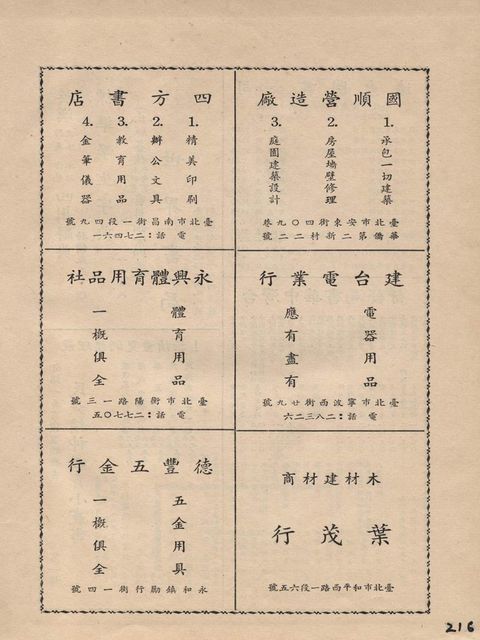 國順營造廠
1. 承包一切建築
2. 房屋墻壁修理
3. 庭園建築設計
臺北市安東街四〇九巷
華僑第二新村二二號
四方書店
1. 精美印刷
2. 辦公文具
3. 教育用品
4. 金筆儀器
臺北市南昌街一段四九號
電話:二七四六一
建台電業行
電器用品
應有盡有
臺北市寧波西街廿九號
電話:二八三二六
永興體育用品社
體育用品
一概俱全
臺北市衡陽路一三號
電話:二七七〇五
木材建材商
葉茂行
臺北市和平西路一段六五號
德豐五金行
五金用具
一概俱全
永和鎮勵行街一四號
216